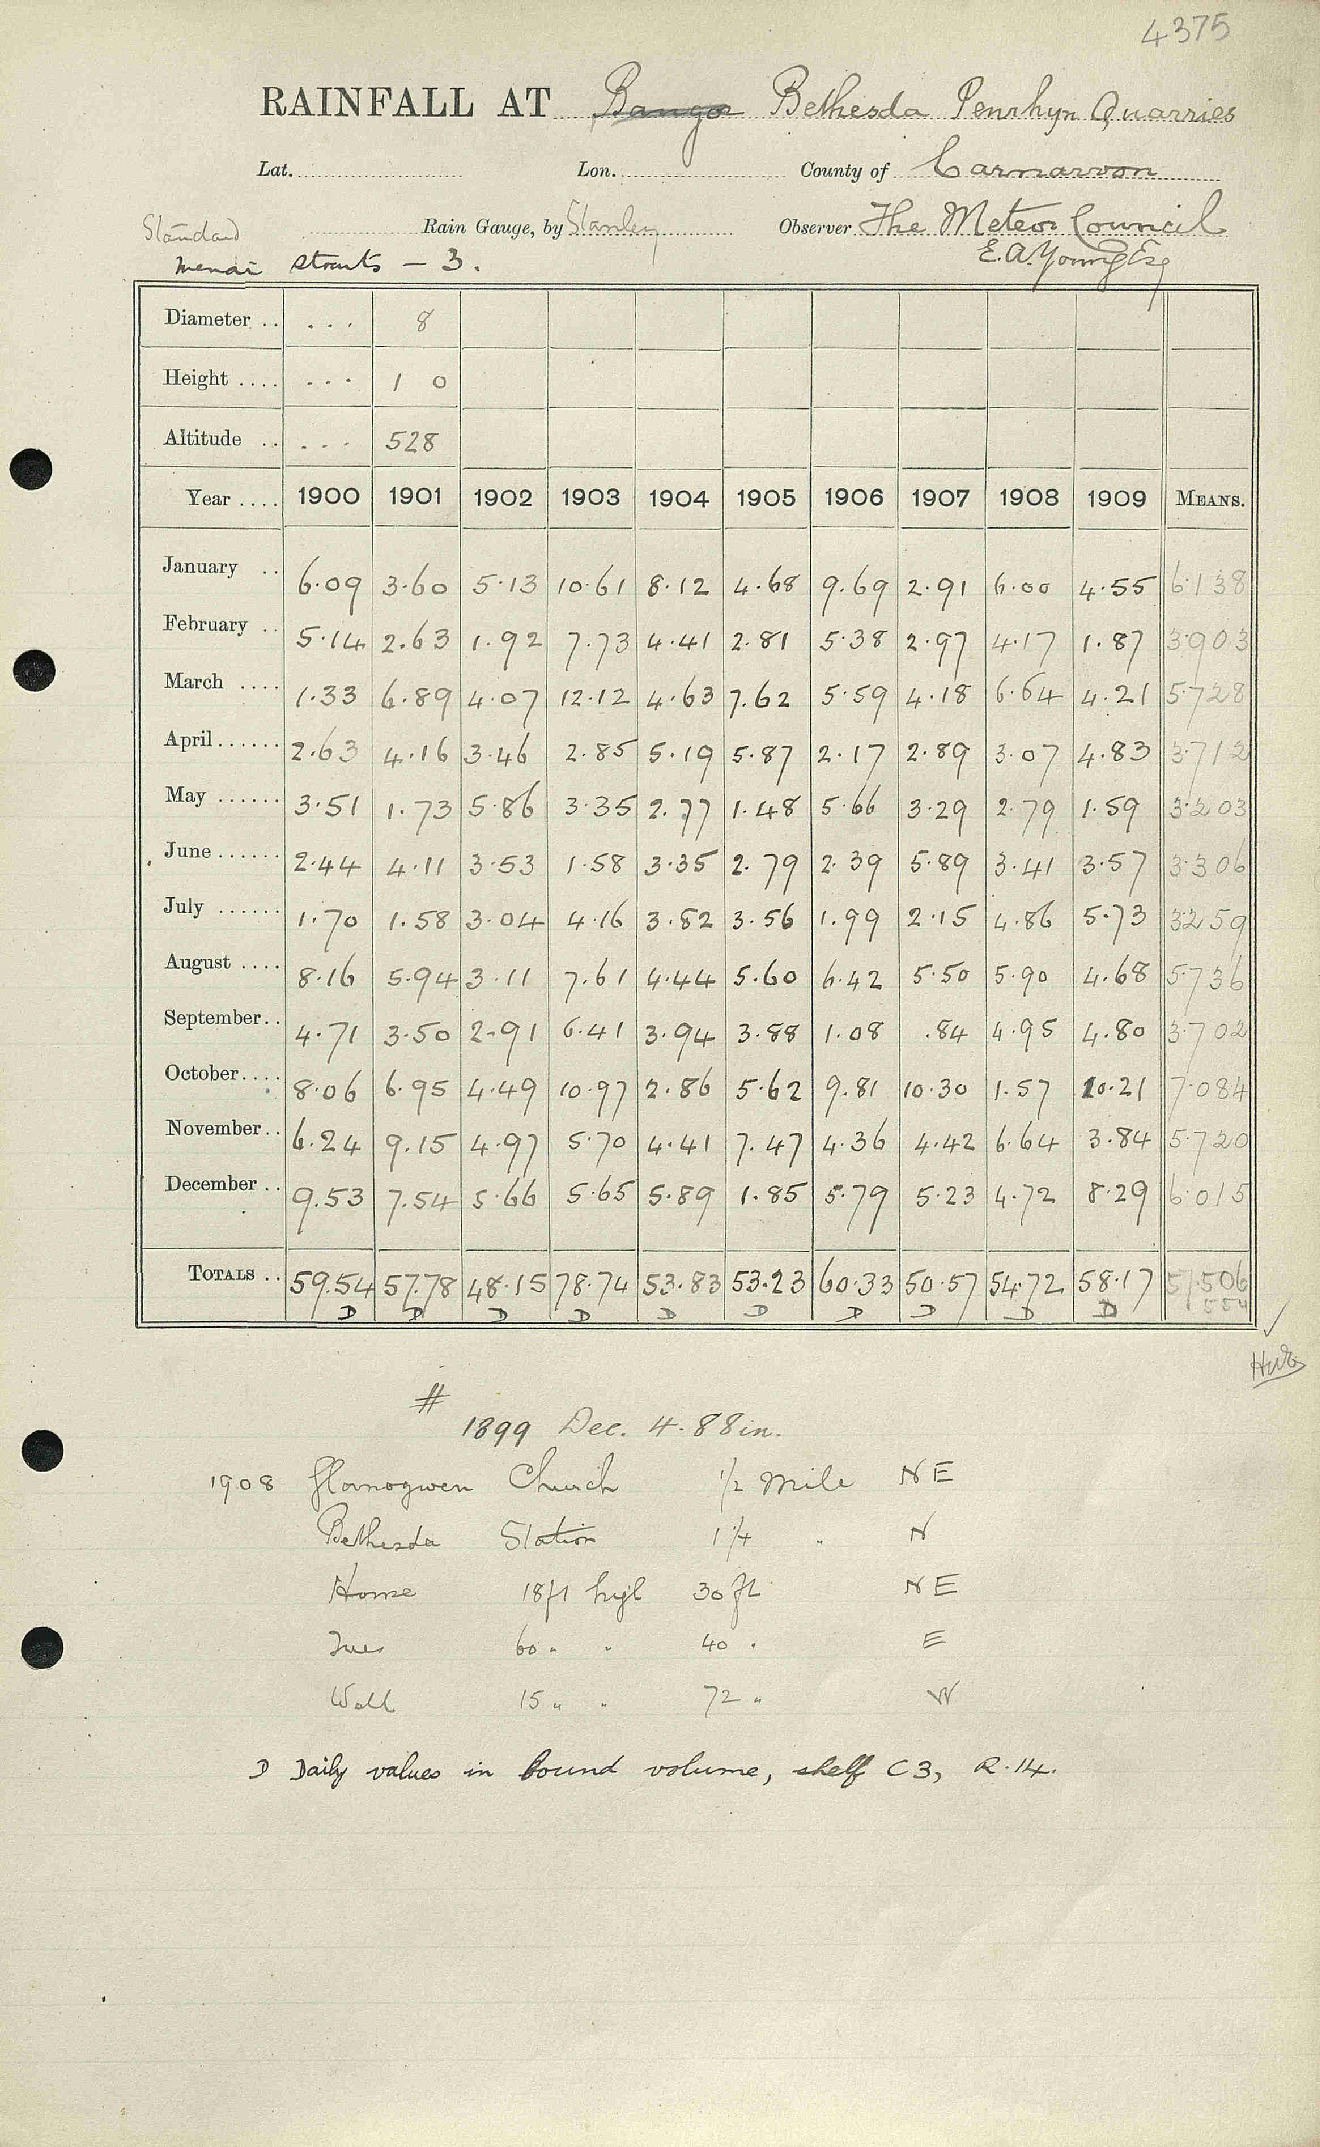 4375
RAINFALL AT Bangor Bethesda Penrhyn Quarries
Lat. Lon. County of Carnarvon
Standard Rain Gauge, by Stanley Observer The Meteor Council
Menai Straits – 3. E. A. Young Esq
Diameter .. ... 8
Height .... ... 1 0
Altitude .. ... 528
Year .... 1900 1901 1902 1903 1904 1905 1906 1907 1908 1909 MEANS.
January .. 6.09 3.60 5.13 10.61 8.12 4.68 9.69 2.91 6.00 4.55 6.138
February .. 5.14 2.63 1.92 7.73 4.41 2.81 5.38 2.97 4.17 1.87 3.903
March .... 1.33 6.89 4.07 12.12 4.63 7.62 5.59 4.18 6.64 4.21 5.728
April ...... 2.63 4.16 3.46 2.85 5.19 5.87 2.17 2.89 3.07 4.83 3.712
May ...... 3.51 1.73 5.86 3.35 2.77 1.48 5.66 3.29 2.79 1.59 3.203
June ...... 2.44 4.11 3.53 1.58 3.35 2.79 2.39 5.89 3.41 3.57 3.306
July ...... 1.70 1.58 3.04 4.16 3.82 3.56 1.99 2.15 4.86 5.73 3.259
August .... 8.16 5.94 3.11 7.61 4.44 5.60 6.42 5.50 5.90 4.68 5.736
September .. 4.71 3.50 2.91 6.41 3.94 3.88 1.08 .84 4.95 4.80 3.702
October .... 8.06 6.95 4.49 10.97 2.86 5.62 9.81 10.30 1.57 10.21 7.084
November .. 6.24 9.15 4.97 5.70 4.41 7.47 4.36 4.42 6.64 3.84 5.720
December .. 9.53 7.54 5.66 5.65 5.89 1.85 5.79 5.23 4.72 8.29 6.015
TOTALS .. 59.54 57.78 48.15 78.74 53.83 53.23 60.33 50.57 54.72 58.17 51.506
D D D D D D D D D D
#
1899 Dec. 4.88 in.
1908 Glanogwen Church 1/2 Mile NE
Bethesda Station 1 1/4 " N
House 18 ft high 30 ft NE
Trees 60 " " 40 " E
Wall 15 " " 72 " W
D Daily values in bound volume, shelf C3, R.14.